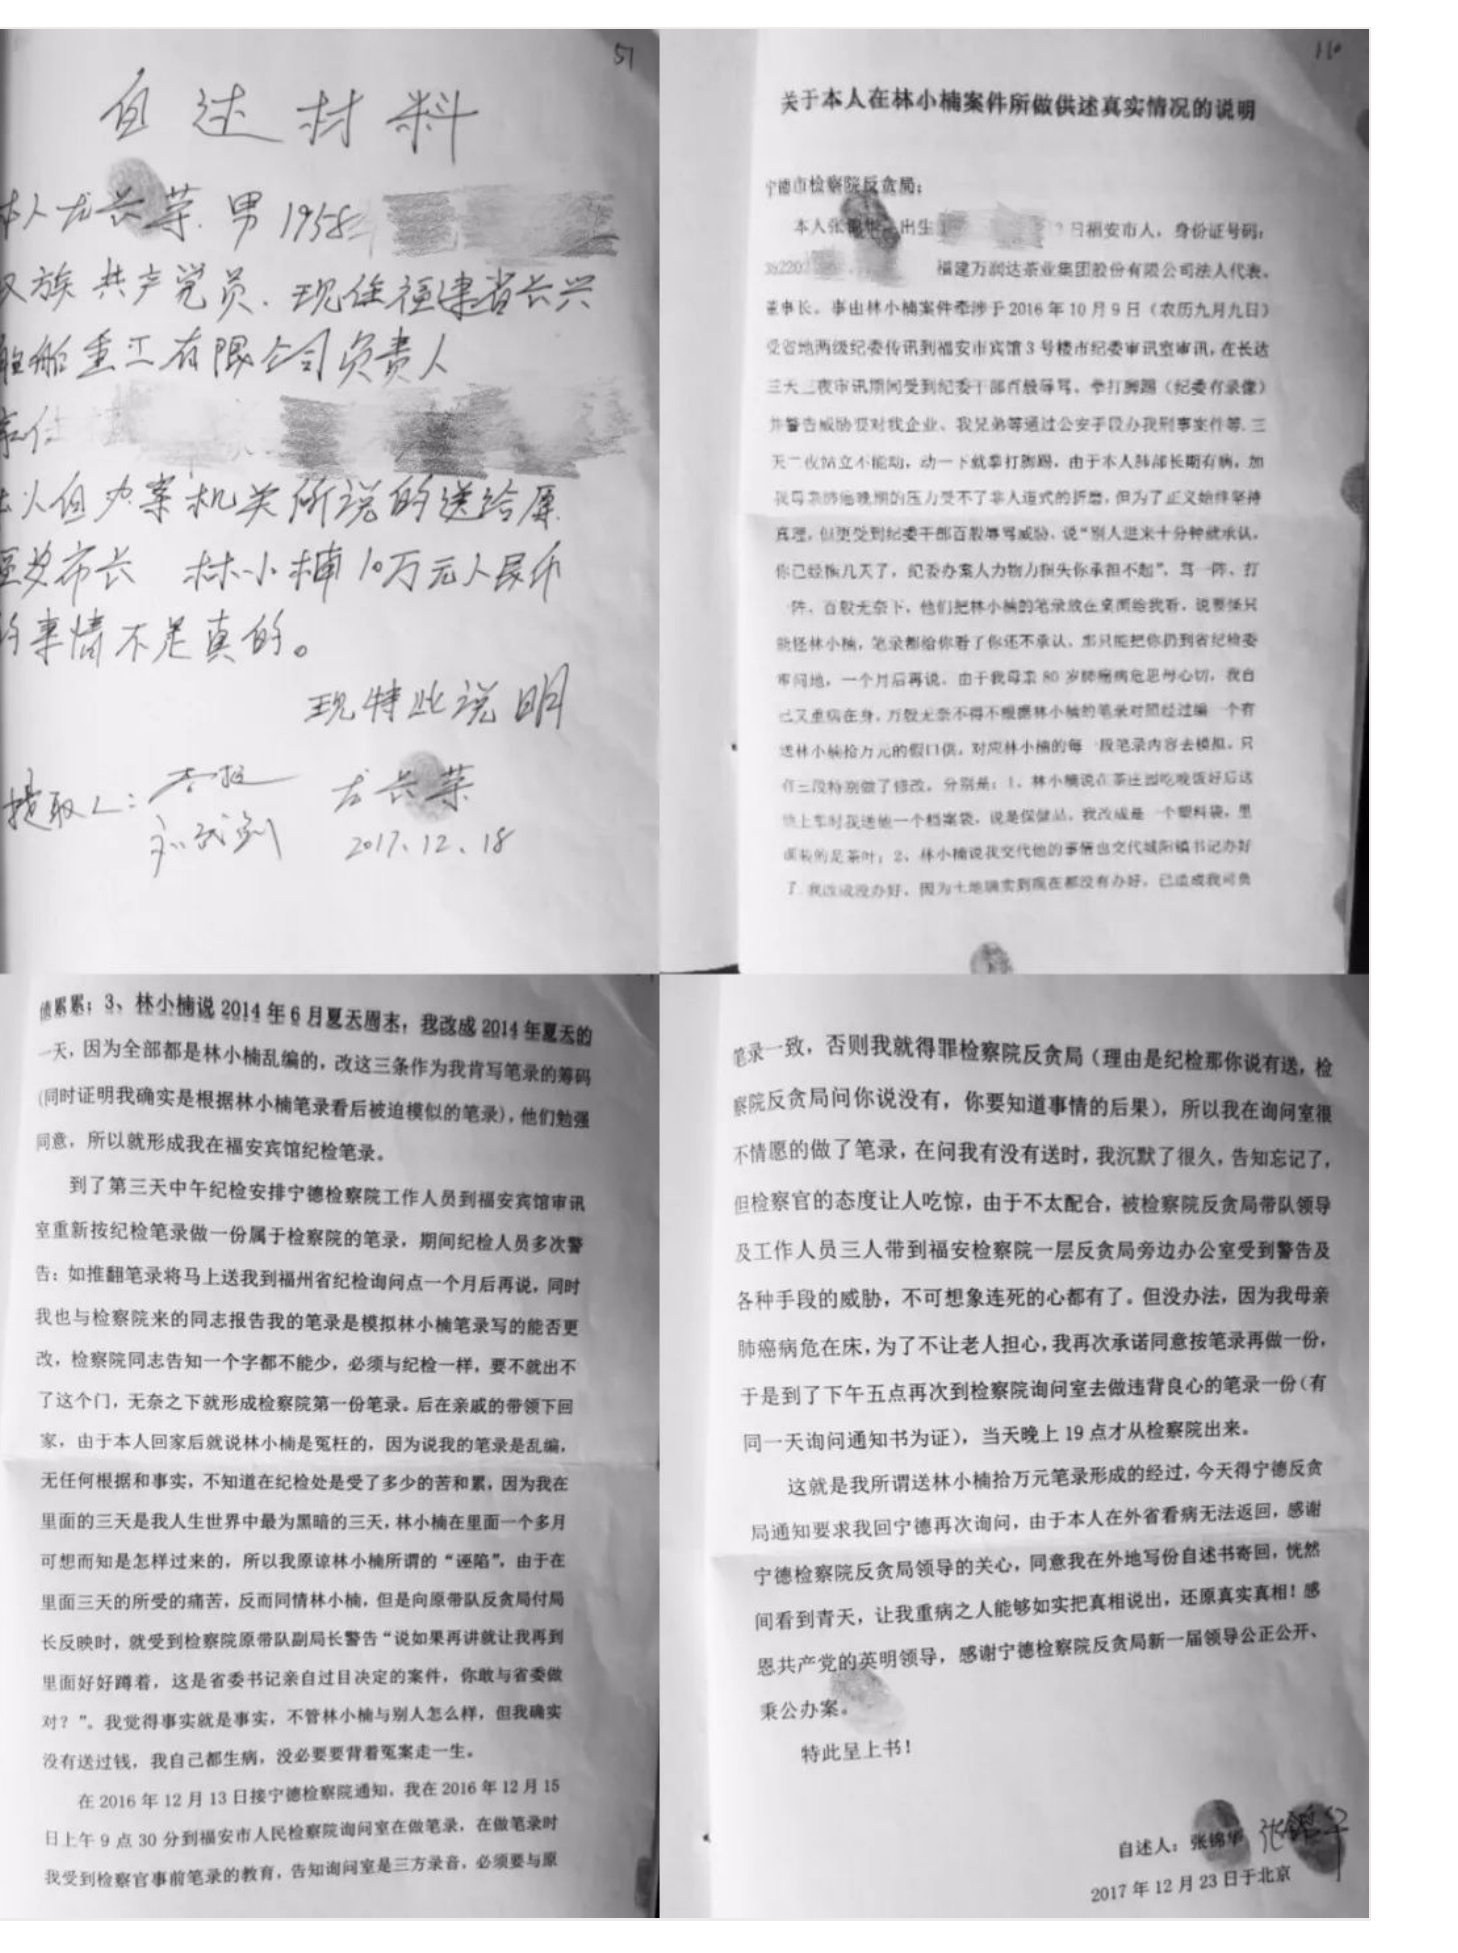 51
自述材料
本人尤长荣.男1958
汉族 共产党员.现任福建省长兴
船舶重工有限公司负责人
法人但办案机关所说的送给原
副市长 林小楠10万元人民币
的事情不是真的。
现特此说明
提取人:
尤长荣
2017.12.18
110
关于本人在林小楠案件所做供述真实情况的说明
宁德市检察院反贪局:
本人张锦华,出生 日福安市人,身份证号码:
352202 福建万润达茶业集团股份有限公司法人代表,
董事长。事由林小楠案件牵涉于2016年10月9日(农历九月九日)
受省地两级纪委传讯到福安市宾馆3号楼市纪委审讯室审讯,在长达
三天三夜审讯期间受到纪委干部百般辱骂、拳打脚踢(纪委有录像)
并警告威胁要对我企业、我兄弟等通过公安手段办我刑事案件等,三
天三夜站立不能动,动一下就拳打脚踢,由于本人肺部长期有病,加
我母亲肺癌晚期的压力受不了非人道式的折磨,但为了正义始终坚持
真理,但更受到纪委干部百般辱骂威胁,说“别人进来十分钟就承认,
你已经拖几天了,纪委办案人力物力损失你承担不起”,骂一阵、打
一阵,百般无奈下,他们把林小楠的笔录放在桌面给我看,说要怪只
能怪林小楠,笔录都给你看了你还不承认,那只能把你扔到省纪检委
审问地,一个月后再说。由于我母亲80岁肺癌病危思母心切,我自
己又重病在身,万般无奈不得不根据林小楠的笔录对照经过编一个有
送林小楠拾万元的假口供,对应林小楠的每一段笔录内容去模拟,只
有三段特别做了修改,分别是:1、林小楠说在茶庄园吃晚饭好后送
他上车时我送他一个档案袋,说是保健品,我改成是一个塑料袋,里
面装的是茶叶;2、林小楠说我交代他的事情也交代城阳镇书记办好
了,我改成没办好,因为土地确实到现在都没有办好,已造成我司负
债累累;3、林小楠说2014年6月夏天周末,我改成2014年夏天的
一天,因为全部都是林小楠乱编的,改这三条作为我肯写笔录的筹码
(同时证明我确实是根据林小楠笔录看后被迫模似的笔录),他们勉强
同意,所以就形成我在福安宾馆纪检笔录。
到了第三天中午纪检安排宁德检察院工作人员到福安宾馆审讯
室重新按纪检笔录做一份属于检察院的笔录,期间纪检人员多次警
告:如推翻笔录将马上送我到福州省纪检询问点一个月后再说,同时
我也与检察院来的同志报告我的笔录是模拟林小楠笔录写的能否更
改,检察院同志告知一个字都不能少,必须与纪检一样,要不就出不
了这个门,无奈之下就形成检察院第一份笔录。后在亲戚的带领下回
家,由于本人回家后就说林小楠是冤枉的,因为说我的笔录是乱编,
无任何根据和事实,不知道在纪检处是受了多少的苦和累,因为我在
里面的三天是我人生世界中最为黑暗的三天,林小楠在里面一个多月
可想而知是怎样过来的,所以我原谅林小楠所谓的“诬陷”,由于在
里面三天的所受的痛苦,反而同情林小楠,但是向原带队反贪局付局
长反映时,就受到检察院原带队副局长警告“说如果再讲就让我再到
里面好好蹲着,这是省委书记亲自过目决定的案件,你敢与省委做
对?”。我觉得事实就是事实,不管林小楠与别人怎么样,但我确实
没有送过钱,我自己都生病,没必要要背着冤案走一生。
在2016年12月13日接宁德检察院通知,我在2016年12月15
日上午9点30分到福安市人民检察院询问室在做笔录,在做笔录时
我受到检察官事前笔录的教育,告知询问室是三方录音,必须要与原
笔录一致,否则我就得罪检察院反贪局(理由是纪检那你说有送,检
察院反贪局问你说没有,你要知道事情的后果),所以我在询问室很
不情愿的做了笔录,在问我有没有送时,我沉默了很久,告知忘记了,
但检察官的态度让人吃惊,由于不太配合,被检察院反贪局带队领导
及工作人员三人带到福安检察院一层反贪局旁边办公室受到警告及
各种手段的威胁,不可想象连死的心都有了。但没办法,因为我母亲
肺癌病危在床,为了不让老人担心,我再次承诺同意按笔录再做一份,
于是到了下午五点再次到检察院询问室去做违背良心的笔录一份(有
同一天询问通知书为证),当天晚上19点才从检察院出来。
这就是我所谓送林小楠拾万元笔录形成的经过,今天得宁德反贪
局通知要求我回宁德再次询问,由于本人在外省看病无法返回,感谢
宁德检察院反贪局领导的关心,同意我在外地写份自述书寄回,恍然
间看到青天,让我重病之人能够如实把真相说出,还原真实真相!感
恩共产党的英明领导,感谢宁德检察院反贪局新一届领导公正公开、
秉公办案。
特此呈上书!
自述人:张锦华 张锦华
2017年12月23日于北京